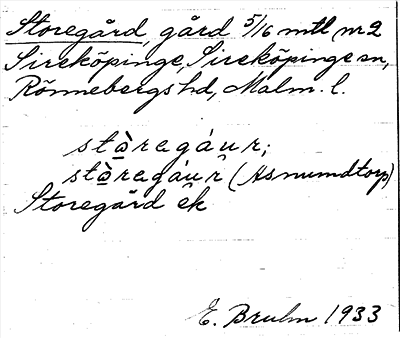 Storegård, gård 5/16 mtl nr 2
Sireköpinge, Sireköpinge sn,
Rönnebergs hd, Malm. l.
stòregáur;
stòregáur (Asmundtorp)
Storegård ek
E. Bruhn 1933